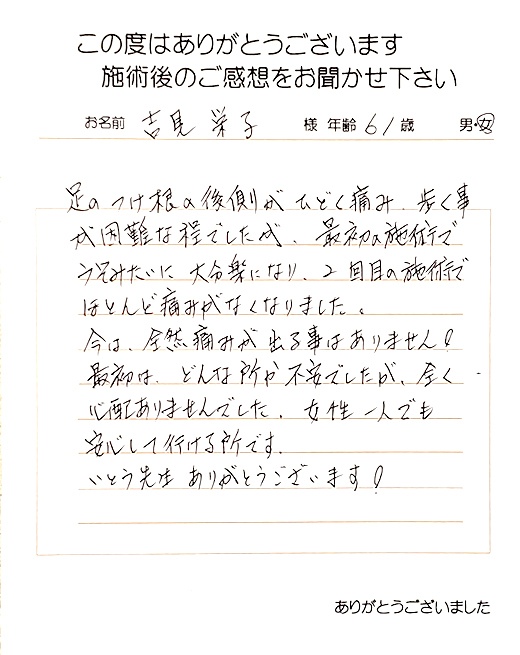 この度はありがとうございます
施術後のご感想をお聞かせ下さい
お名前 吉見 栄子 様 年齢 61 歳 男・女
足のつけ根の後側がひどく痛み、歩く事
が困難な程でしたが、最初の施術で
うそみたいに大分楽になり、2回目の施術で
ほとんど痛みがなくなりました。
今は、全然痛みが出る事はありません!
最初は、どんな所か不安でしたが、全く
心配ありませんでした。女性一人でも
安心して行ける所です。
いとう先生ありがとうございます!
ありがとうございました